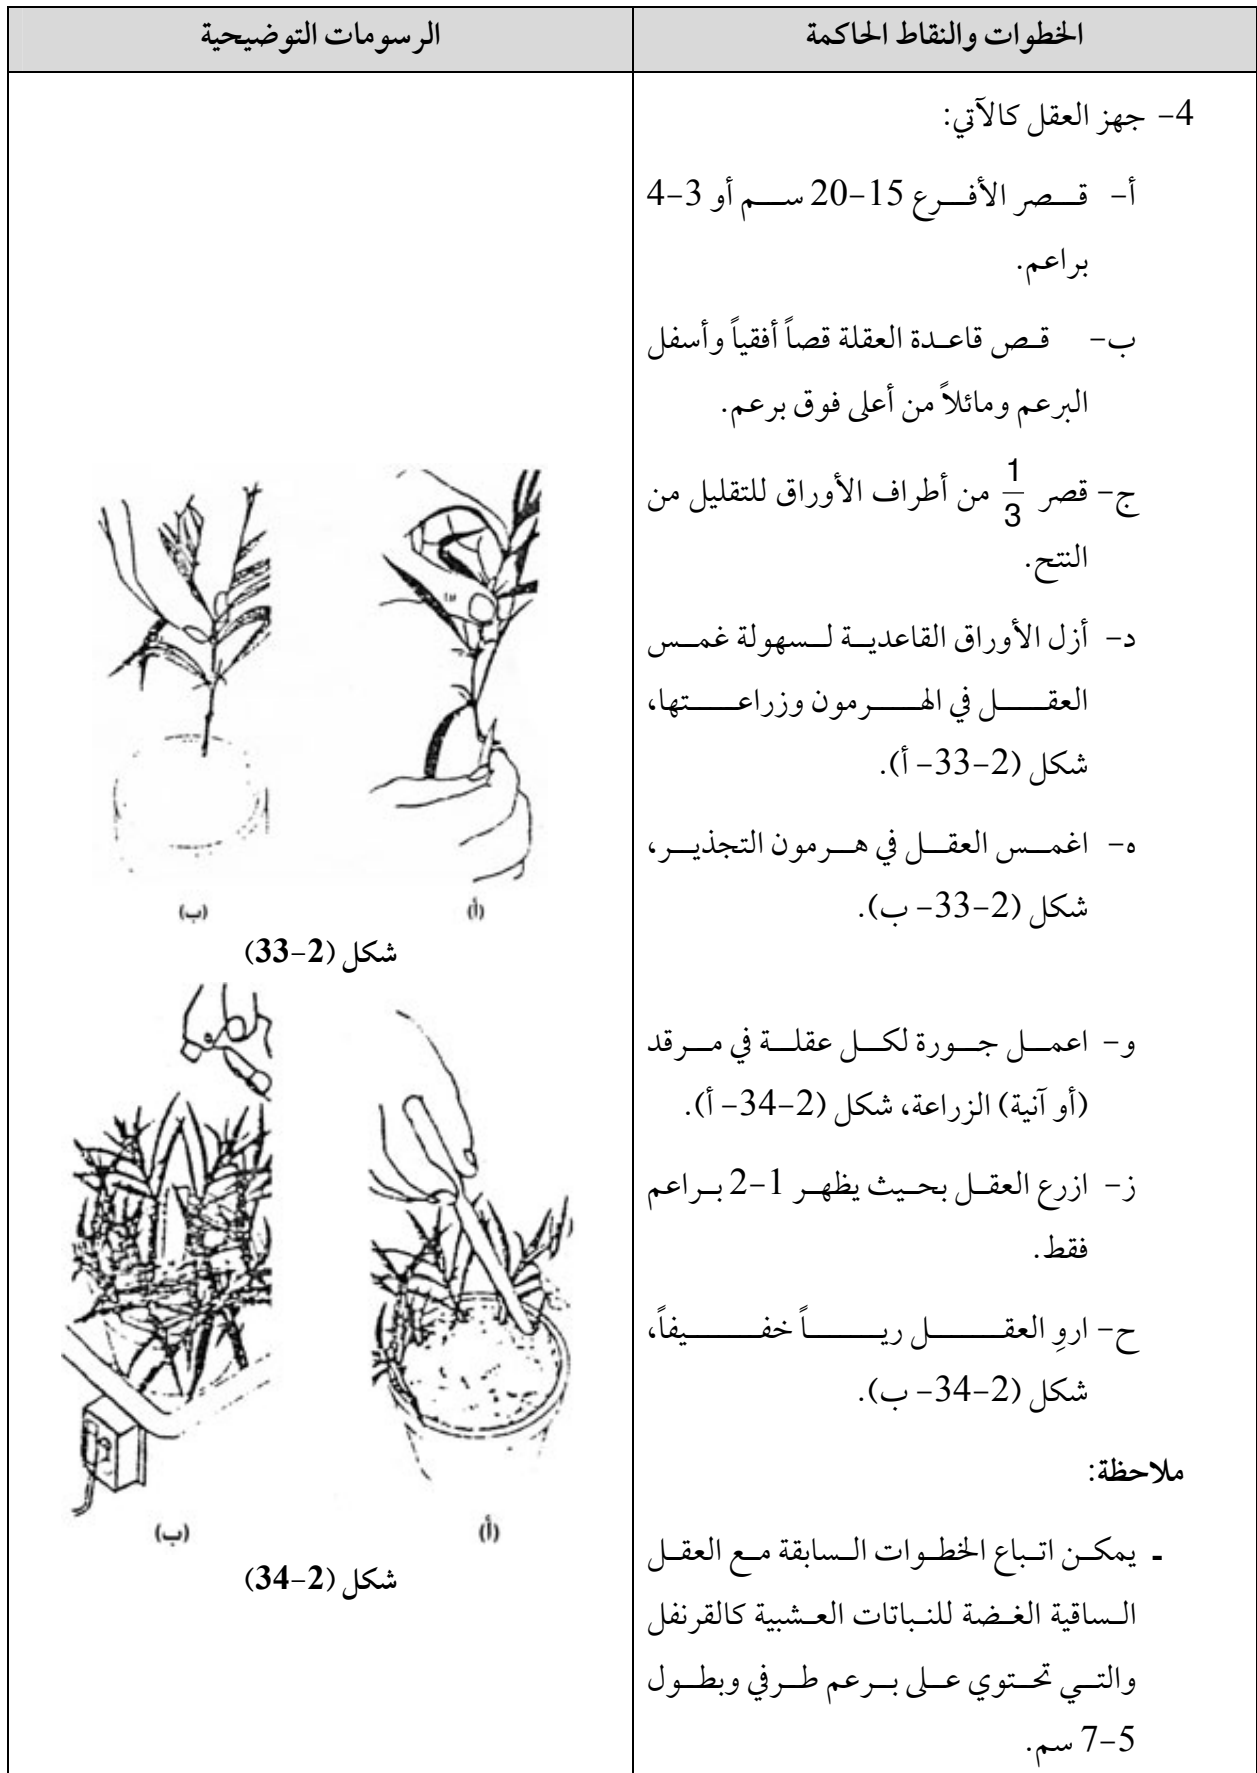 الخطوات والنقاط الحاكمة
الرسومات التوضيحية
4- جهز العقل كالآتي:
أ- قصر الأفرع 15-20 سم أو 3-4
براعم.
ب- قص قاعدة العقلة قصاً أفقياً وأسفل
البرعم ومائلاً من أعلى فوق برعم.
ج- قصر 1/3 من أطراف الأوراق للتقليل من
النتح.
د- أزل الأوراق القاعدية لسهولة غمس
العقل في الهرمون وزراعتها،
شكل (2-33- أ).
ه- اغمس العقل في هرمون التجذير،
شكل (2-33- ب).
و- اعمل جورة لكل عقلة في مرقد
(أو آنية) الزراعة، شكل (2-34- أ).
ز- ازرع العقل بحيث يظهر 1-2 براعم
فقط.
ح- اروِ العقل رياً خفيفاً،
شكل (2-34- ب).
ملاحظة:
- يمكن اتباع الخطوات السابقة مع العقل
الساقية الغضة للنباتات العشبية كالقرنفل
والتي تحتوي على برعم طرفي وبطول
5-7 سم.
(أ)
(ب)
شكل (2-33)
(أ)
(ب)
شكل (2-34)